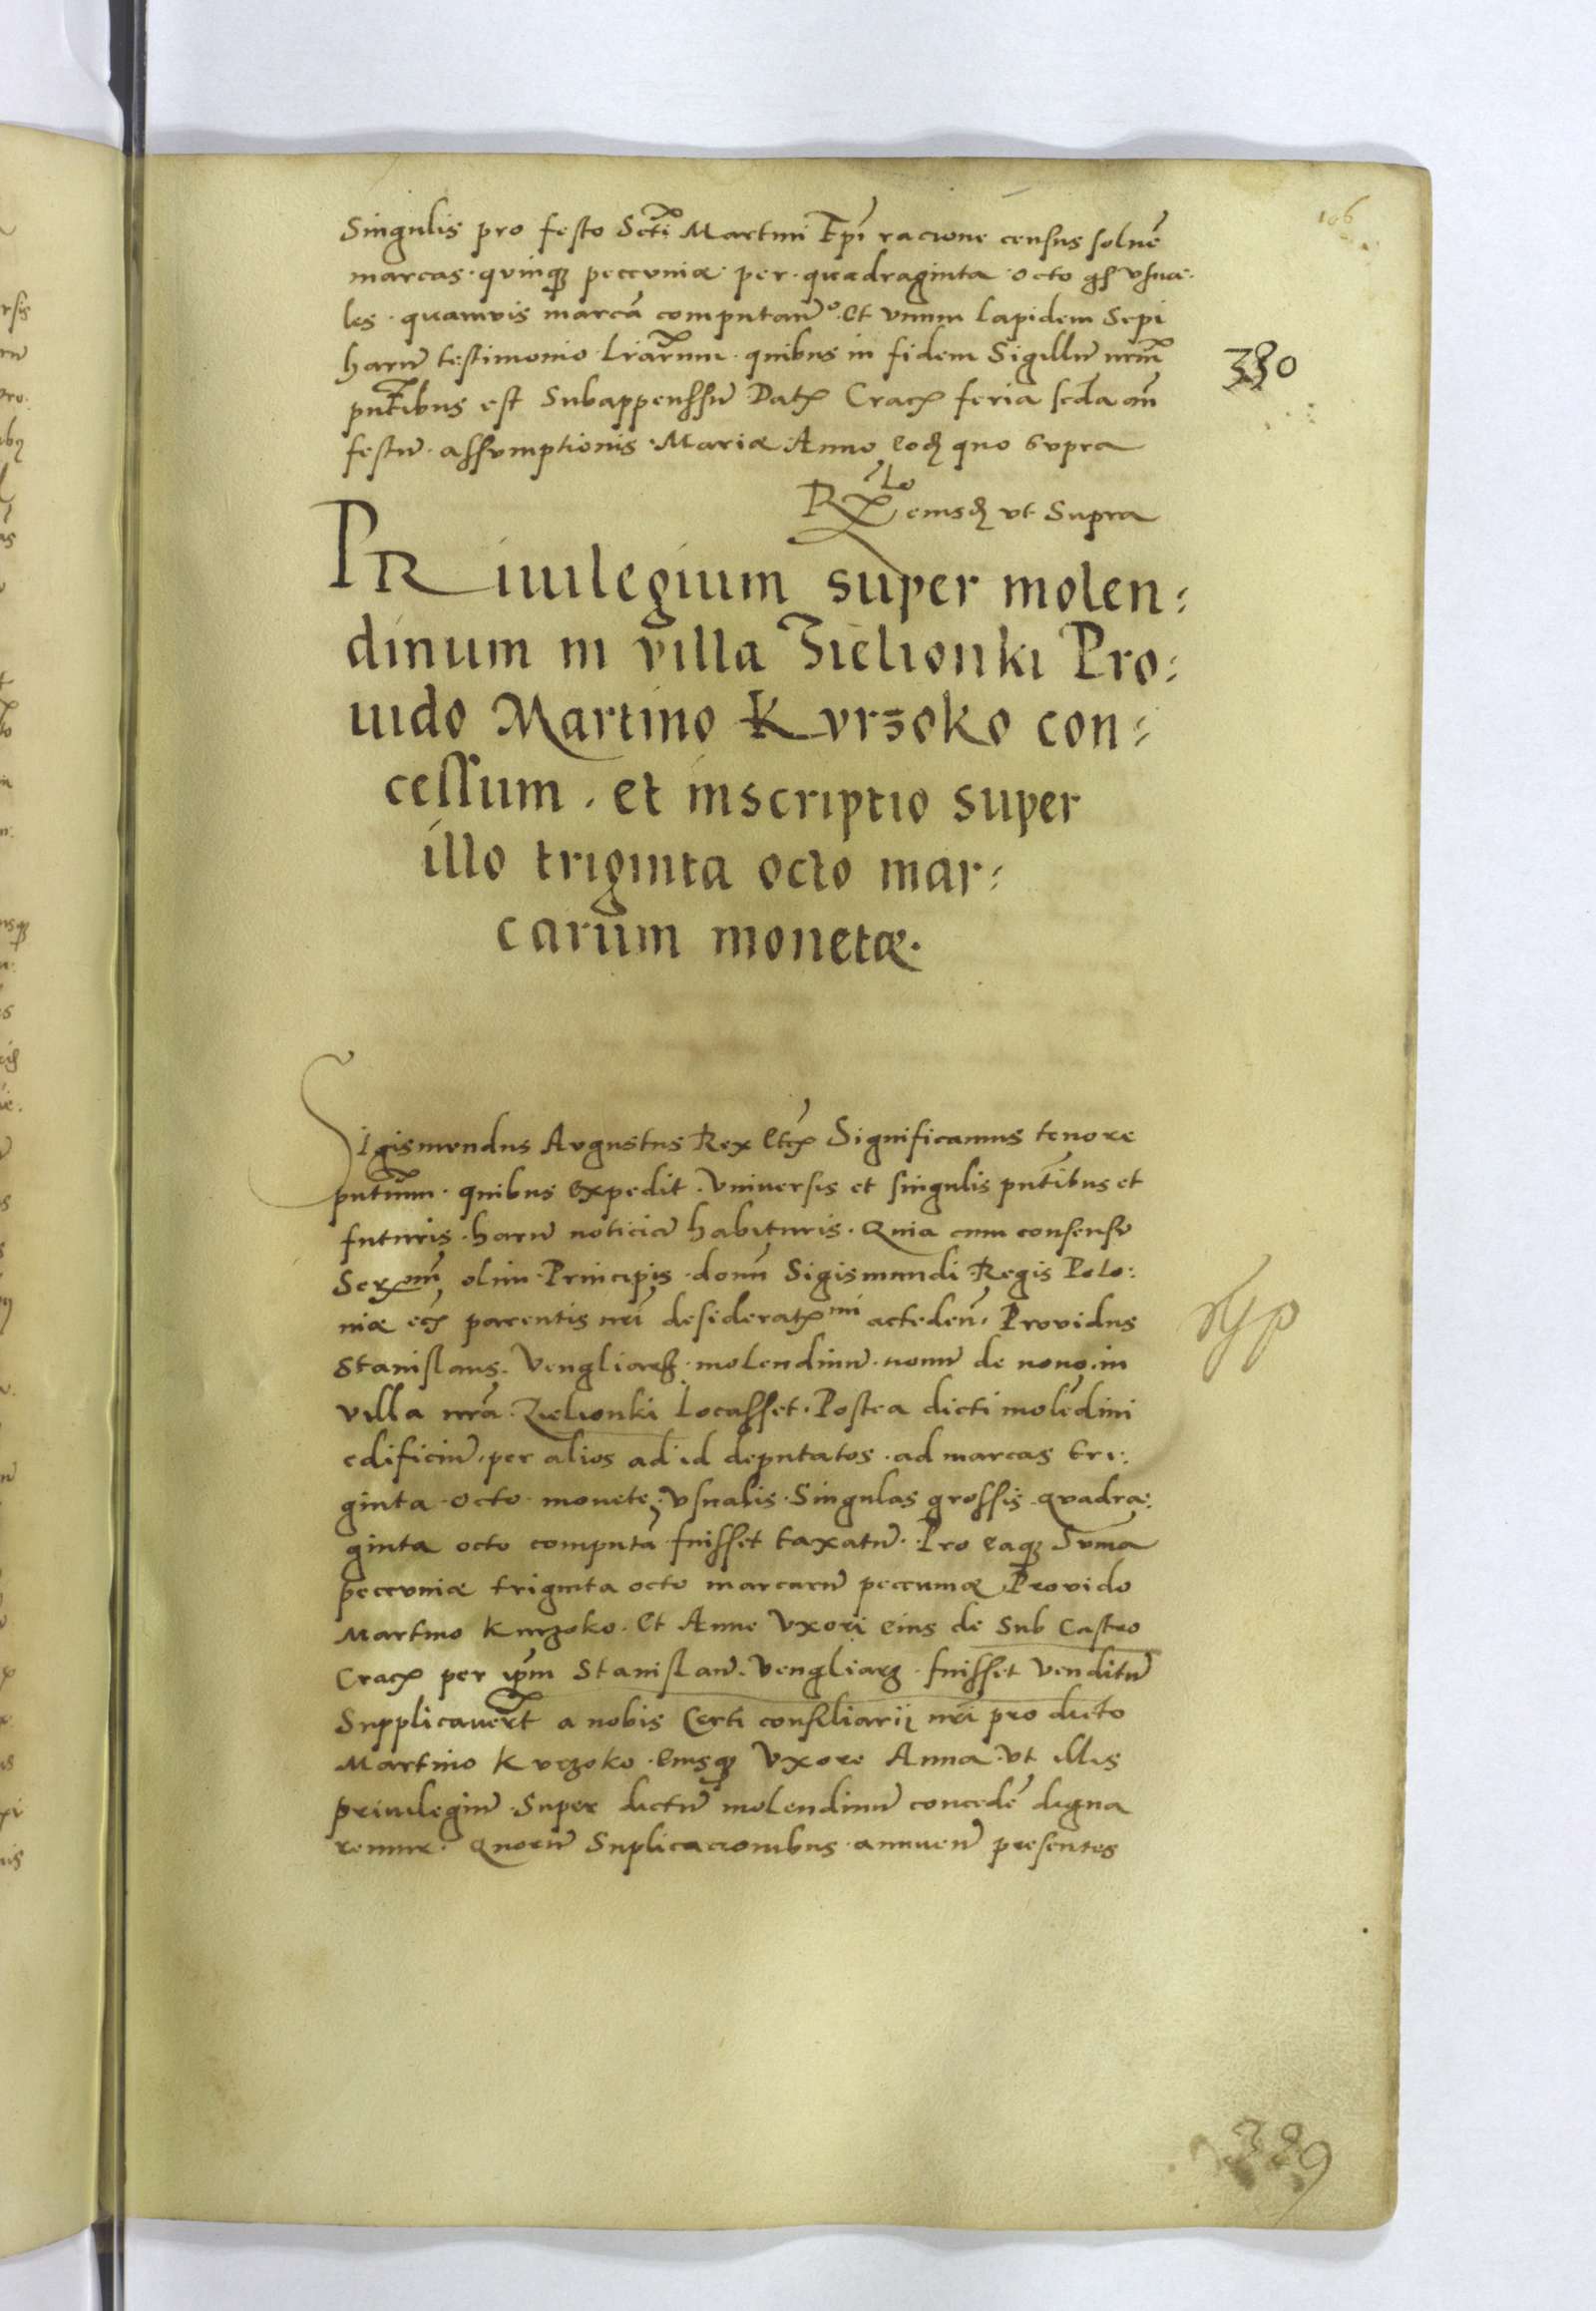 106
Singulis pro festo Scti Martini Epi racione census soluē
marcas · quinqz peccuniæ · per · quadraginta · octo gs̄ vsua:
les · quamvis marcā computanō · Et vnum Lapidem Sepi
harū testimonio Lr̄arum · quibus in fidem Sigillū nrm̄
330
pntibus est Subappenssū Datx Cracx feria scda an̄
festū · assumptionis · Mariæ · Anno eodz quo supra
Rxlo eiusdz vt Supra
PRiuilegium super molen=
dinum in villa Zielionki Pro=
uido Martino Kvrzoko con=
cessum · et inscriptio super
illo triginta octo mar=
carum monetæ.
Sigismvndus Avgustus Rex Etcx Significamus tenore
pntium · quibus expedit · vniuersis et singulis pntibus et
futuris · harū noticiā habituris · Quia cum consensu
Serxmi olim · Principis · domī Sigismundi · Regis Polo:
niæ ecx parentis nrī desideratxmi acceden̄ · Providus
Stanislaus · Vengliarz · molendinū · nouū de nouo · in
villa nrā · Zielionki Locasset · Postea dicti molēdini
edificiū · per alios ad id deputatos · ad marcas tri:
ginta · octo · monete · vsualis · Singulas grossis · quadra:
ginta octo computā fuisset taxatū · Pro eaqz Sūma
peccuniæ triginta octo marcarū peccuniæ Provido
Martino Kurzoko · Et Anne vxori eius de Sub Castro
Cracx per ipm̄ Stanislaū · Vengliarz · fuisset venditū
Supplicauert a nobis Certi consiliarij nrī pro dicto
Martino Kvrzoko · Eiusqz vxore Anna · vt illis
priuilegiū · Super dictū molendinū concedē digna
remur · Quorū Suplicacionibus · annuen̄ presentes
329